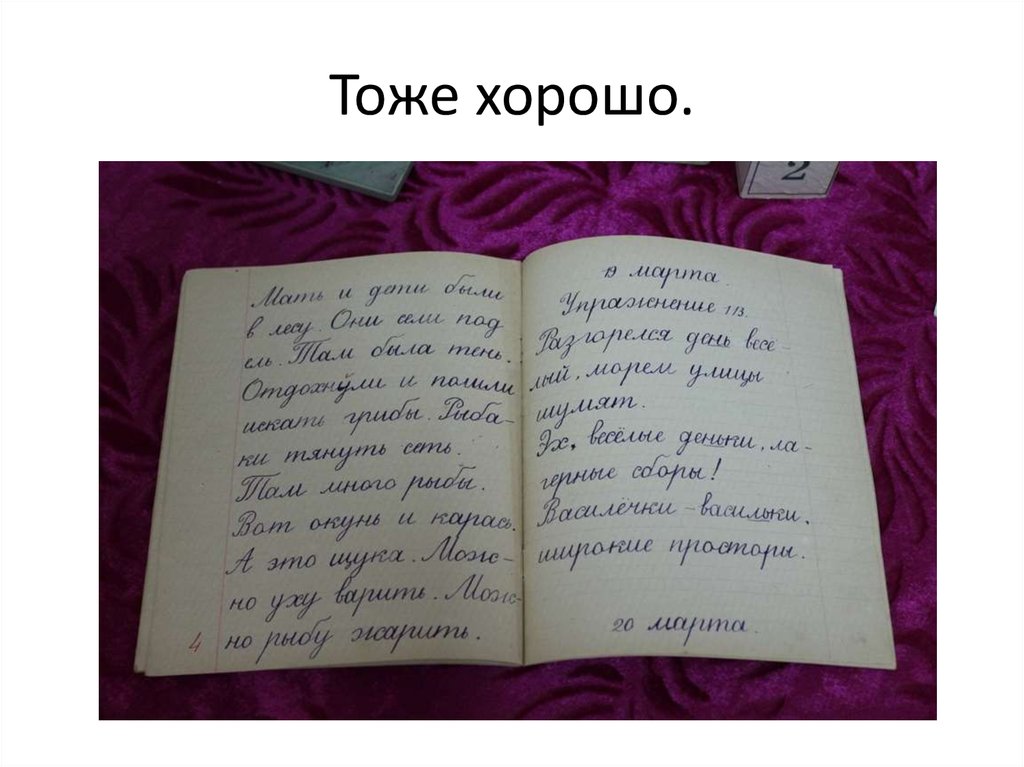 Тоже хорошо.
2
Мать и дети были
в лесу. Они сели под
ель. Там была тень.
Отдохнули и пошли
искать грибы. Рыба-
ки тянуть сеть.
Там много рыбы.
Вот окунь и карась.
А это щука. Мож-
но уху варить. Мож-
но рыбу жарить.
4
19 марта.
Упражнение 113.
Разгорелся день весе-
лый, морем улицы
шумят.
Эх, весёлые деньки, ла-
герные сборы!
Василёчки - васильки,
широкие просторы.
20 марта.